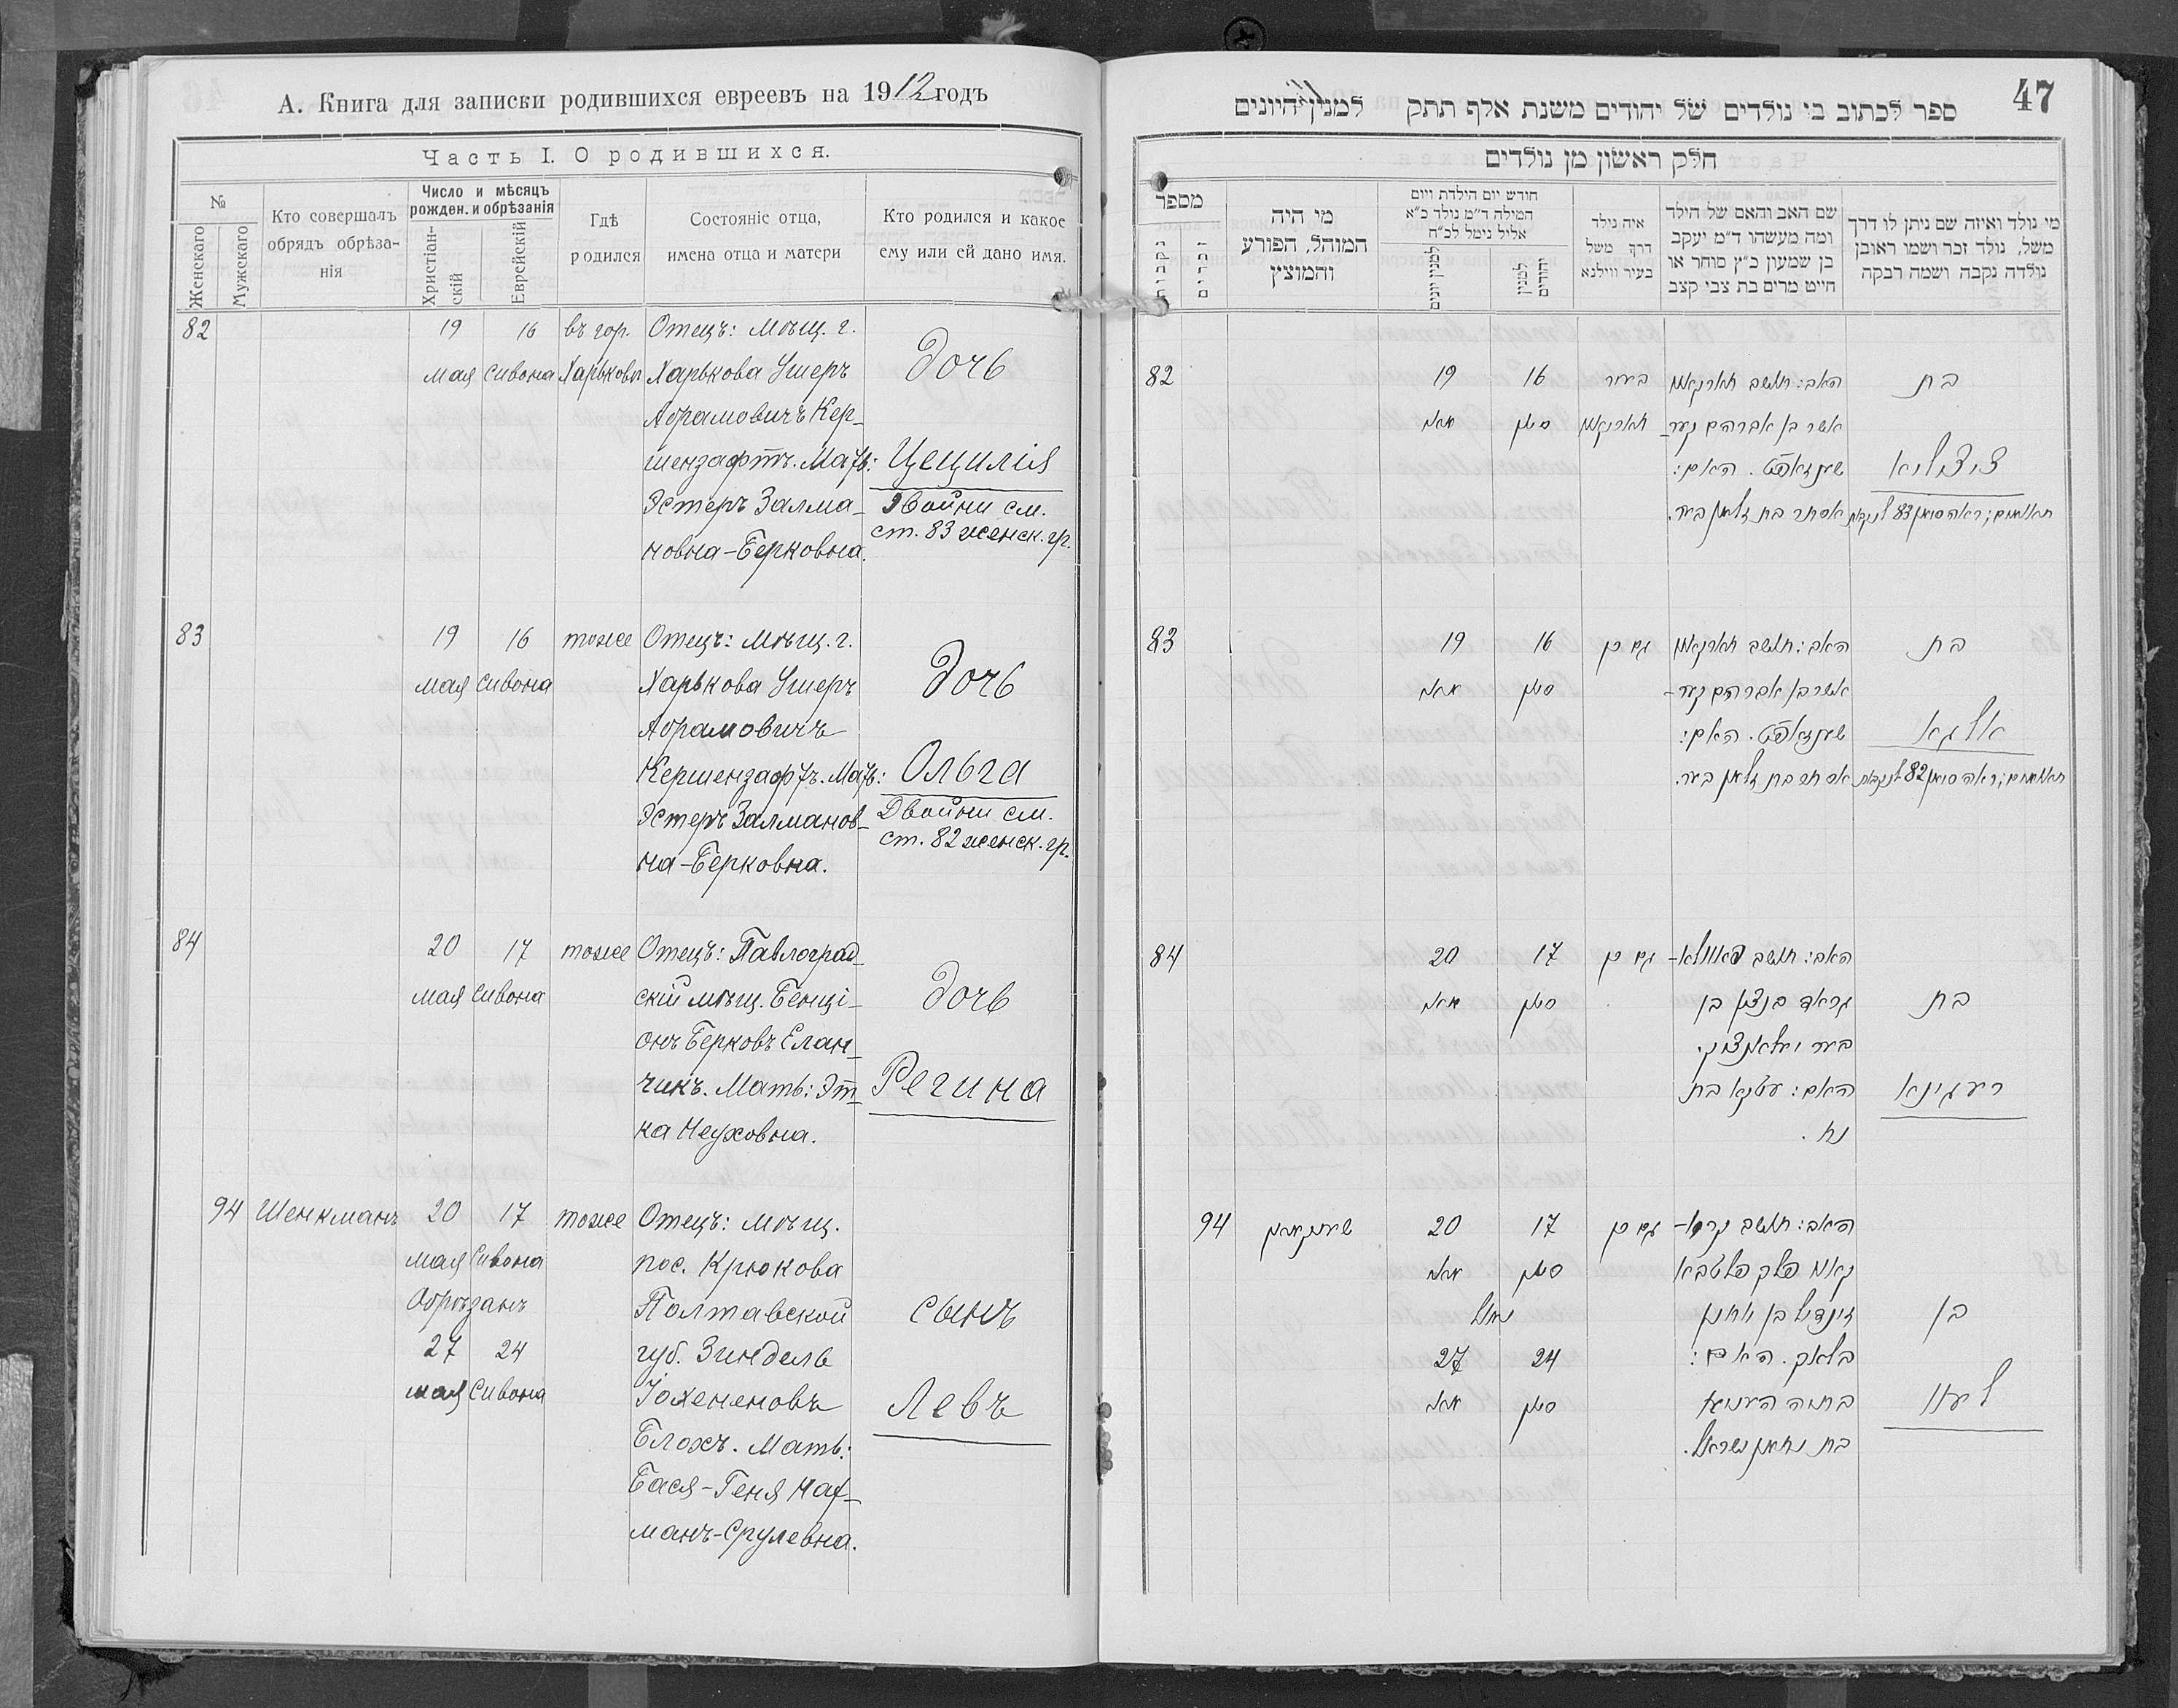 А. Книга для записки родившихся евреевъ на 1912 годъ
Часть I. О родившихся.
№
Женскаго
Мужскаго
Кто совершалъ
обрядъ обрѣза-
нія
Число и мѣсяцъ
рожден. и обрѣзанія
Христіан-
скій
Еврейскій
Гдѣ
родился
Состояніе отца,
имена отца и матери
Кто родился и какое
ему или ей дано имя.
82 19 16 въ гор. Отецъ: Мѣщ. г.
мая Сивона Харьковѣ Харькова Ушеръ Дочь
Абрамовичъ Кер-
шензафтъ. Мать: Цецилія
Эстеръ Залма- Двойни см.
новна-Берковна. ст. 83 женск. гр.
83 19 16 тоже Отецъ: Мѣщ. г.
мая Сивона Харькова Ушеръ Дочь
Абрамовичъ
Кершензафтъ. Мать: Ольга
Эстеръ Залманов- Двойни см.
на-Берковна. ст. 82 женск. гр.
84 20 17 тоже Отецъ: Павлоград-
мая Сивона скій мѣщ. Бенці- Дочь
онъ Берковъ Елан-
чикъ. Мать: Эт- Регина
ка Неуховна.
94 Шенкманъ 20 17 тоже Отецъ: мѣщ.
мая Сивона пос. Крюкова
Обрѣзанъ Полтавской сынъ
27 24 губ. Зиндель
мая Сивона Іохененовъ Левъ
Блохъ. Мать:
Бася-Геня Нах-
манъ-Срулевна.
47
ספר לכתוב בי נולדים של יהודים משנת אלף תתק למנין היונים
חלק ראשון מן נולדים
מספר
נקבות
זכרים
מי היה
המוהל, הפורע
והמוצץ
חודש יום הילדת ויום
המילה ד״מ נולד כ״א
אליל נימל לכ״ח
למנין יונים
למנין
יהודים
איה נולד
דרך משל
בעיר ווילנא
שם האב והאם של הילד
ומה מעשהו ד״מ יעקב
בן שמעון כ״ץ סוחר או
חייט מרים בת צבי קצב
מי נולד ואיזה שם ניתן לו דרך
משל, נולד זכר ושמו ראובן
נולדה נקבה ושמה רבקה
82 19 16 בעיר האב: תושב חארקאוו בת
מאי סיון חארקאוו אשר בן אברהם קער-
שענזאפט. האם: צצליא
אסתר בת זלמן בער. תאומים; ראה סימן 83 לנקבות
83 19 16 גם כן האב: תושב חארקאוו בת
מאי סיון אשר בן אברהם קער-
שענזאפט. האם: אלגא
אסתר בת זלמן בער. תאומים; ראה סימן 82 לנקבות
84 20 17 גם כן האב: תושב פאוולא-
מאי סיון גראד בנציון בן בת
בער יעלאנציק.
האם: עטקא בת רעגינא
נח.
94 שענקמאן 20 17 גם כן האב: תושב קריו-
מאי סיון קאוו פלך פלטבא
נימול זינדיל בן יוחנן בן
27 24 בלאך. האם:
מאי סיון בתיה העניא לעוו
בת נחמן ישראל.